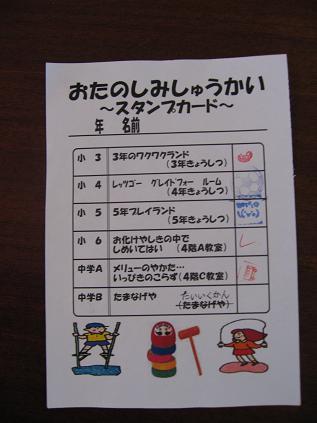 おたのしみしゅうかい
～スタンプカード～
年 名前
小 3 3年のワクワクランド
(3年きょうしつ)
小 4 レッツゴー グレイドフォー ルーム
(4年きょうしつ)
小 5 5年プレイランド
(5年きょうしつ)
小 6 お化けやしきの中で
しめいてはい (4階A教室)
中学A メリューのやかた…
いっぴきのこらず(4階C教室)
中学B たまなげや たいいくかん
(たまなげや)